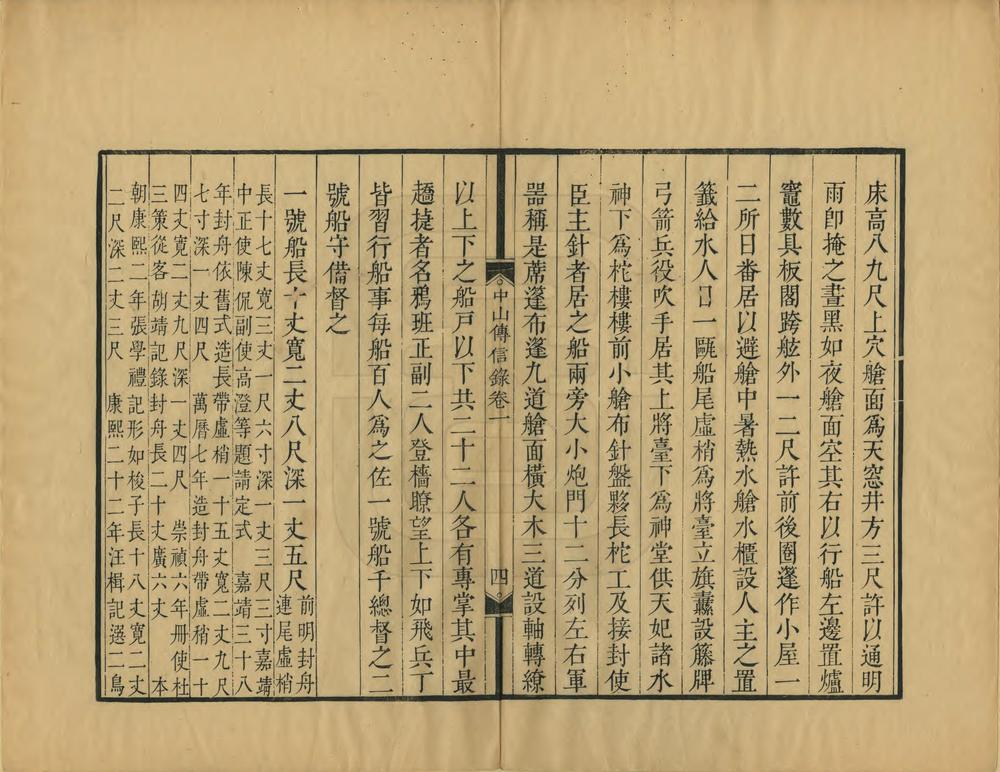 床高八九尺上穴艙面爲天窓井方三尺許以通明
雨卽掩之晝黑如夜艙面空其右以行船左邊置爐
竈數具板閣跨舷外一二尺許前後圈蓬作小屋一
二所日番居以避艙中暑熱水艙水櫃設人主之置
籤給水人日一甌船尾虛梢爲將臺立旗纛設籐牌
弓箭兵役吹手居其上將臺下爲神堂供天妃諸水
神下爲柁樓樓前小艙布針盤夥長柁工及接封使
臣主針者居之船兩旁大小炮門十二分列左右軍
器稱是蓆篷布篷九道艙面橫大木三道設軸轉繚
中山傳信錄卷一
四
以上下之船戶以下共二十二人各有專掌其中最
趫捷者名鴉班正副二人登檣瞭望上下如飛兵丁
皆習行船事每船百人爲之佐一號船千總督之二
號船守備督之
一號船長十丈寬二丈八尺深一丈五尺前明封舟
連尾虛梢
長十七丈寬三丈一尺六寸深一丈三尺三寸嘉靖
中正使陳侃副使高澄等題請定式 嘉靖三十八
年封舟依舊式造長帶虛梢一十五丈寬二丈九尺
七寸深一丈四尺 萬曆七年造封舟帶虛稍一十
四丈寬二丈九尺深一丈四尺 崇禎六年冊使杜
三策從客胡靖記錄封舟長二十丈廣六丈 本
朝康熙二年張學禮記形如梭子長十八丈寬二丈
二尺深二丈三尺 康熙二十二年汪楫記選二鳥